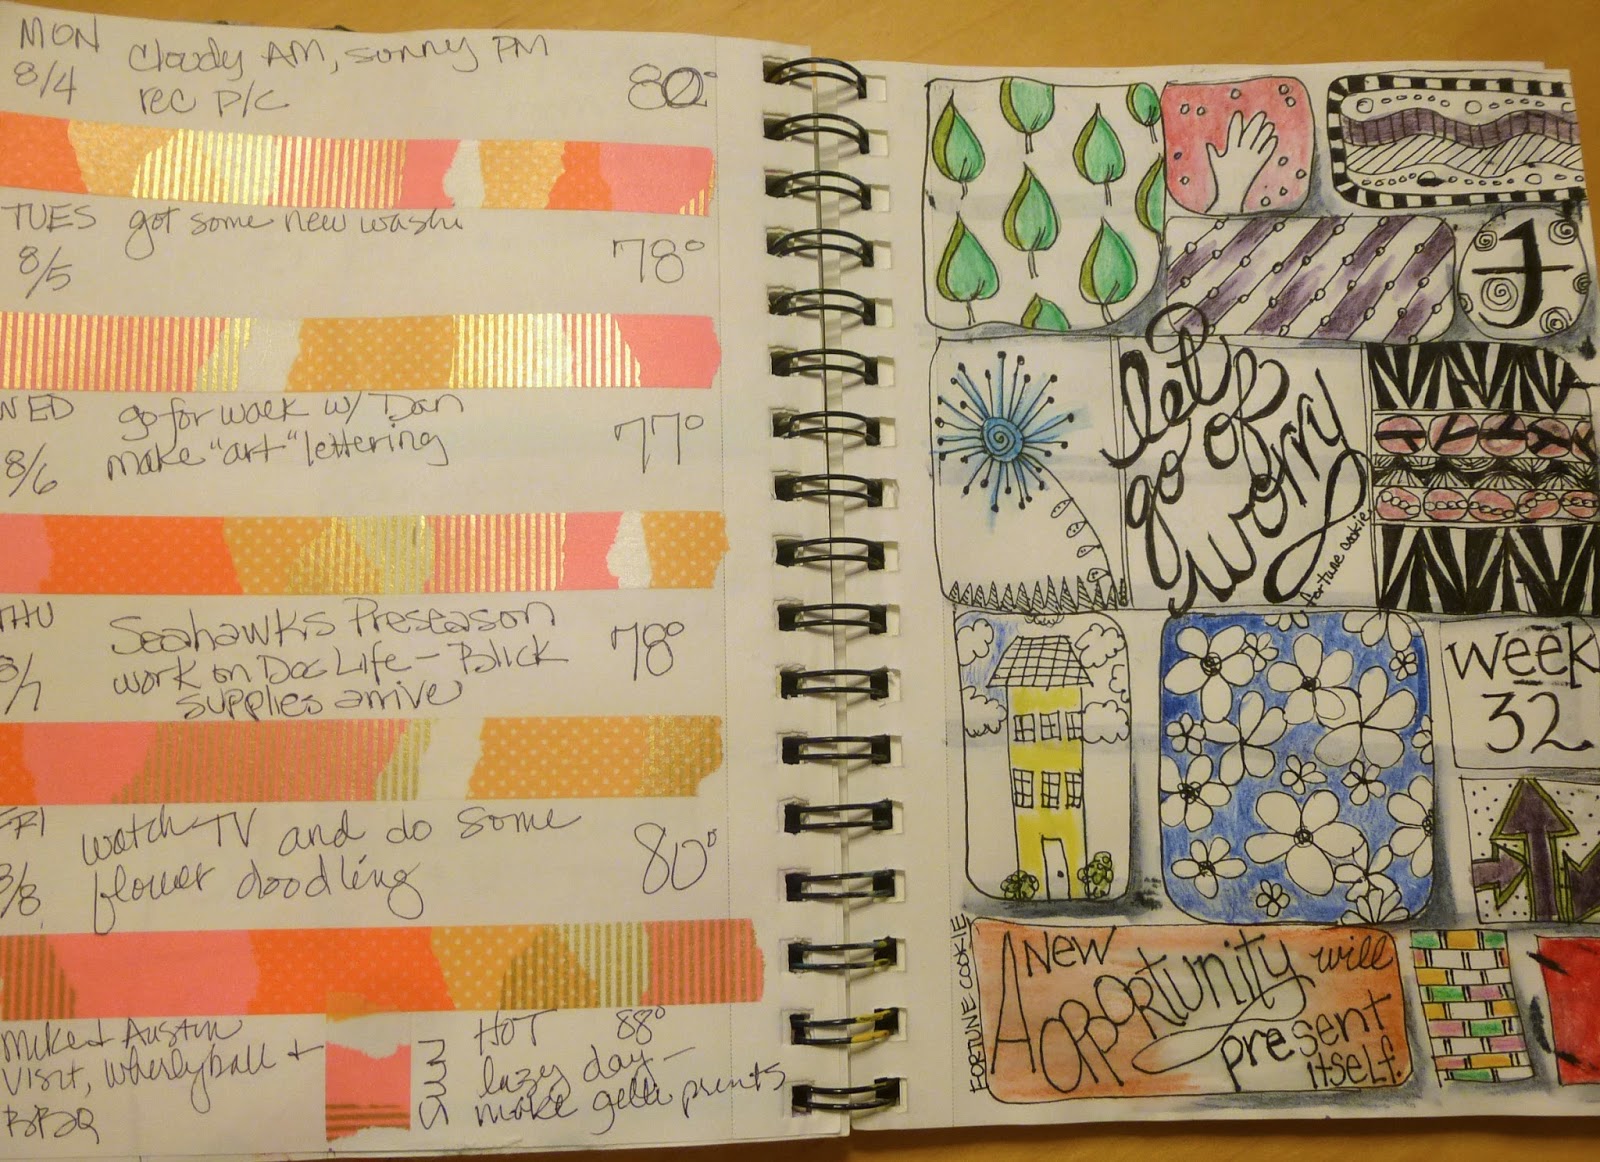 MON cloudy AM, sunny PM
8/4 rec P/C 80°
TUES got some new washi
8/5 78°
WED go for walk w/ Dan
8/6 make "art" lettering 77°
THU Seahawks Preseason
8/7 work on Doc Life - Blick 78°
supplies arrive
FRI watch TV and do some
8/8 flower doodling 80°
Mike + Austin
visit, Whirlyball +
BBQ
SUN
HOT 88°
lazy day -
make gelli prints
let
go of
worry
fortune cookie
Week
32
FORTUNE COOKIE
A New
Opportunity will
present
itself.